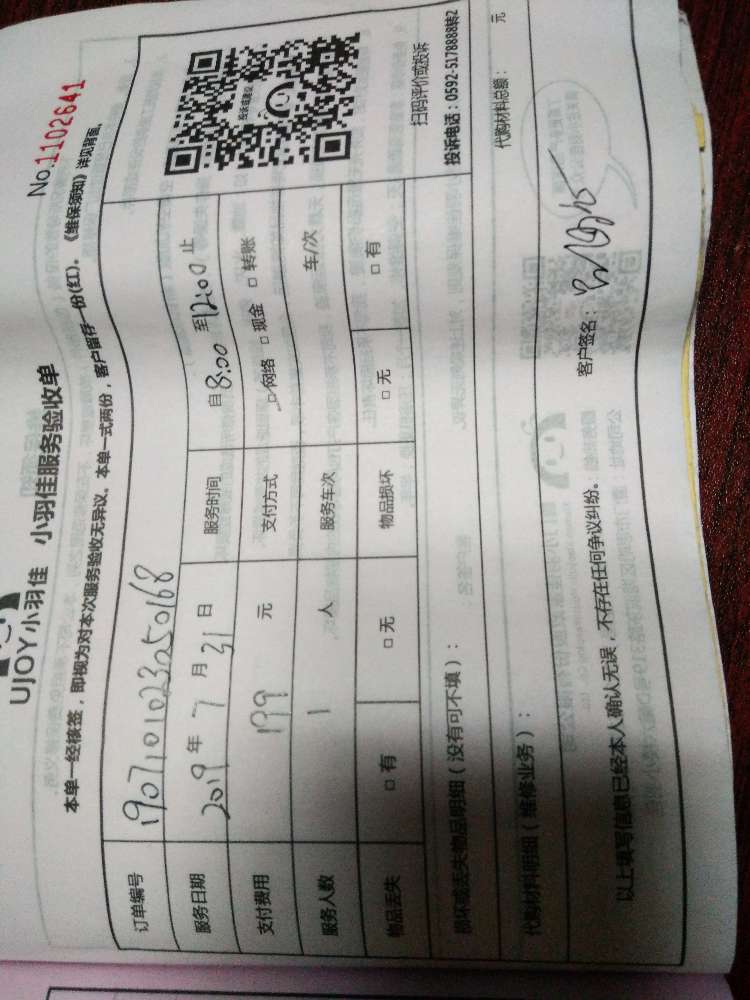 UJOY小羽佳 小羽佳服务验收单
No.1102641
本单一经核签，即视为对本次服务验收无异议。本单一式两份，客户留存一份(红)。《维保须知》详见背面。
订单编号 1907101023250168
服务日期 2019 年 7 月 31 日 服务时间 自 8:00 至 12:00 止
支付费用 199 元 支付方式 □网络 □现金 □转账
服务人数 1 人 服务车次 车/次
物品丢失 □有 □无 物品损坏 □无 □有
投诉或建议
扫码评价或投诉
投诉电话：0592-5178888转2
损坏或丢失物品明细（没有可不填）：
代购材料明细（维修业务）： 代购材料总额： 元
以上填写信息已经本人确认无误，不存在任何争议纠纷。 客户签名：